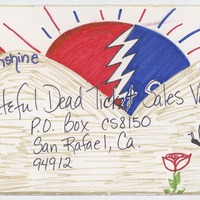 nshine
teful Dead Ticket Sales
P.O. Box CS8150
San Rafael, Ca.
94912